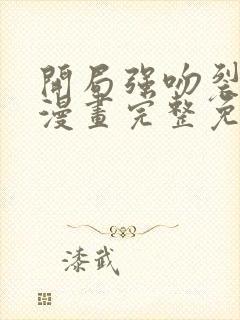 開局強吻裂
漫畫完整免
漆武